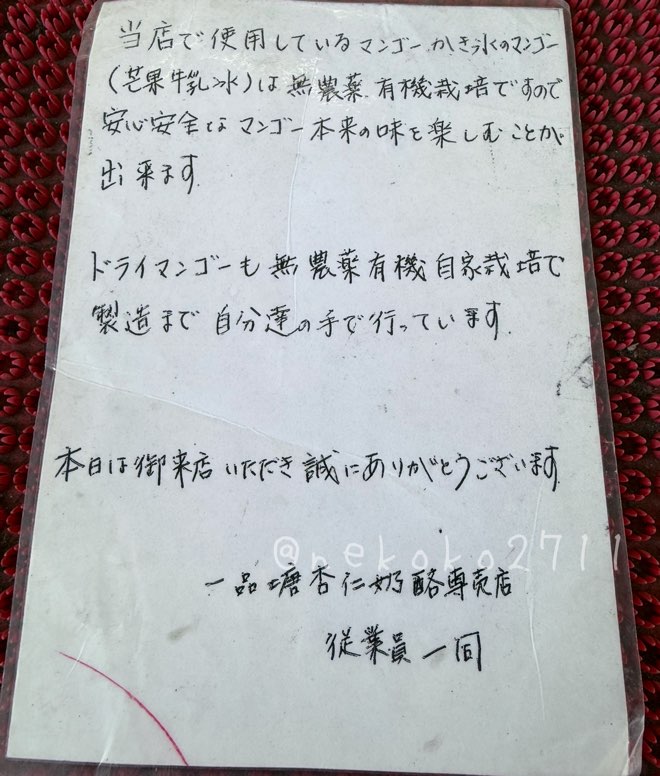 当店で使用しているマンゴーかき氷のマンゴー
(芒果牛乳氷)は無農薬有機栽培ですので
安心安全なマンゴー本来の味を楽しむことが
出来ます.
ドライマンゴーも無農薬有機自家栽培で
製造まで自分達の手で行っています.
本日は御来店いただき誠にありがとうございます.
@nekoko2711
一品塘杏仁奶酪専売店
従業員一同